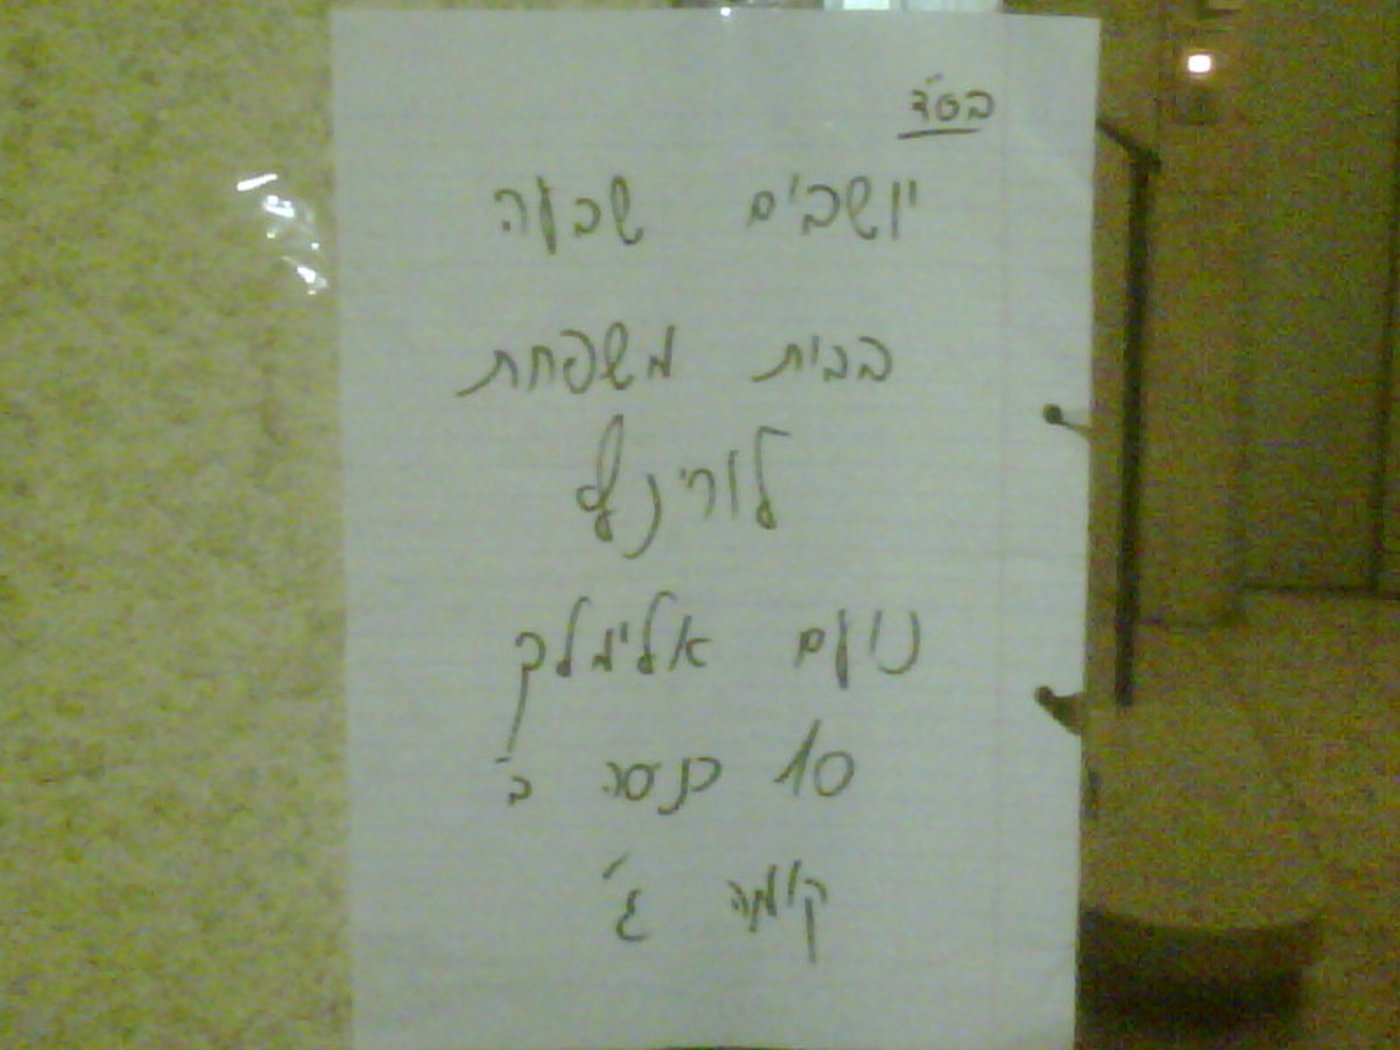 בס"ד
יושבים שבעה
בבית משפחת
לורינץ
נועם אלימלך
10 כנסה ב'
קומה ג'